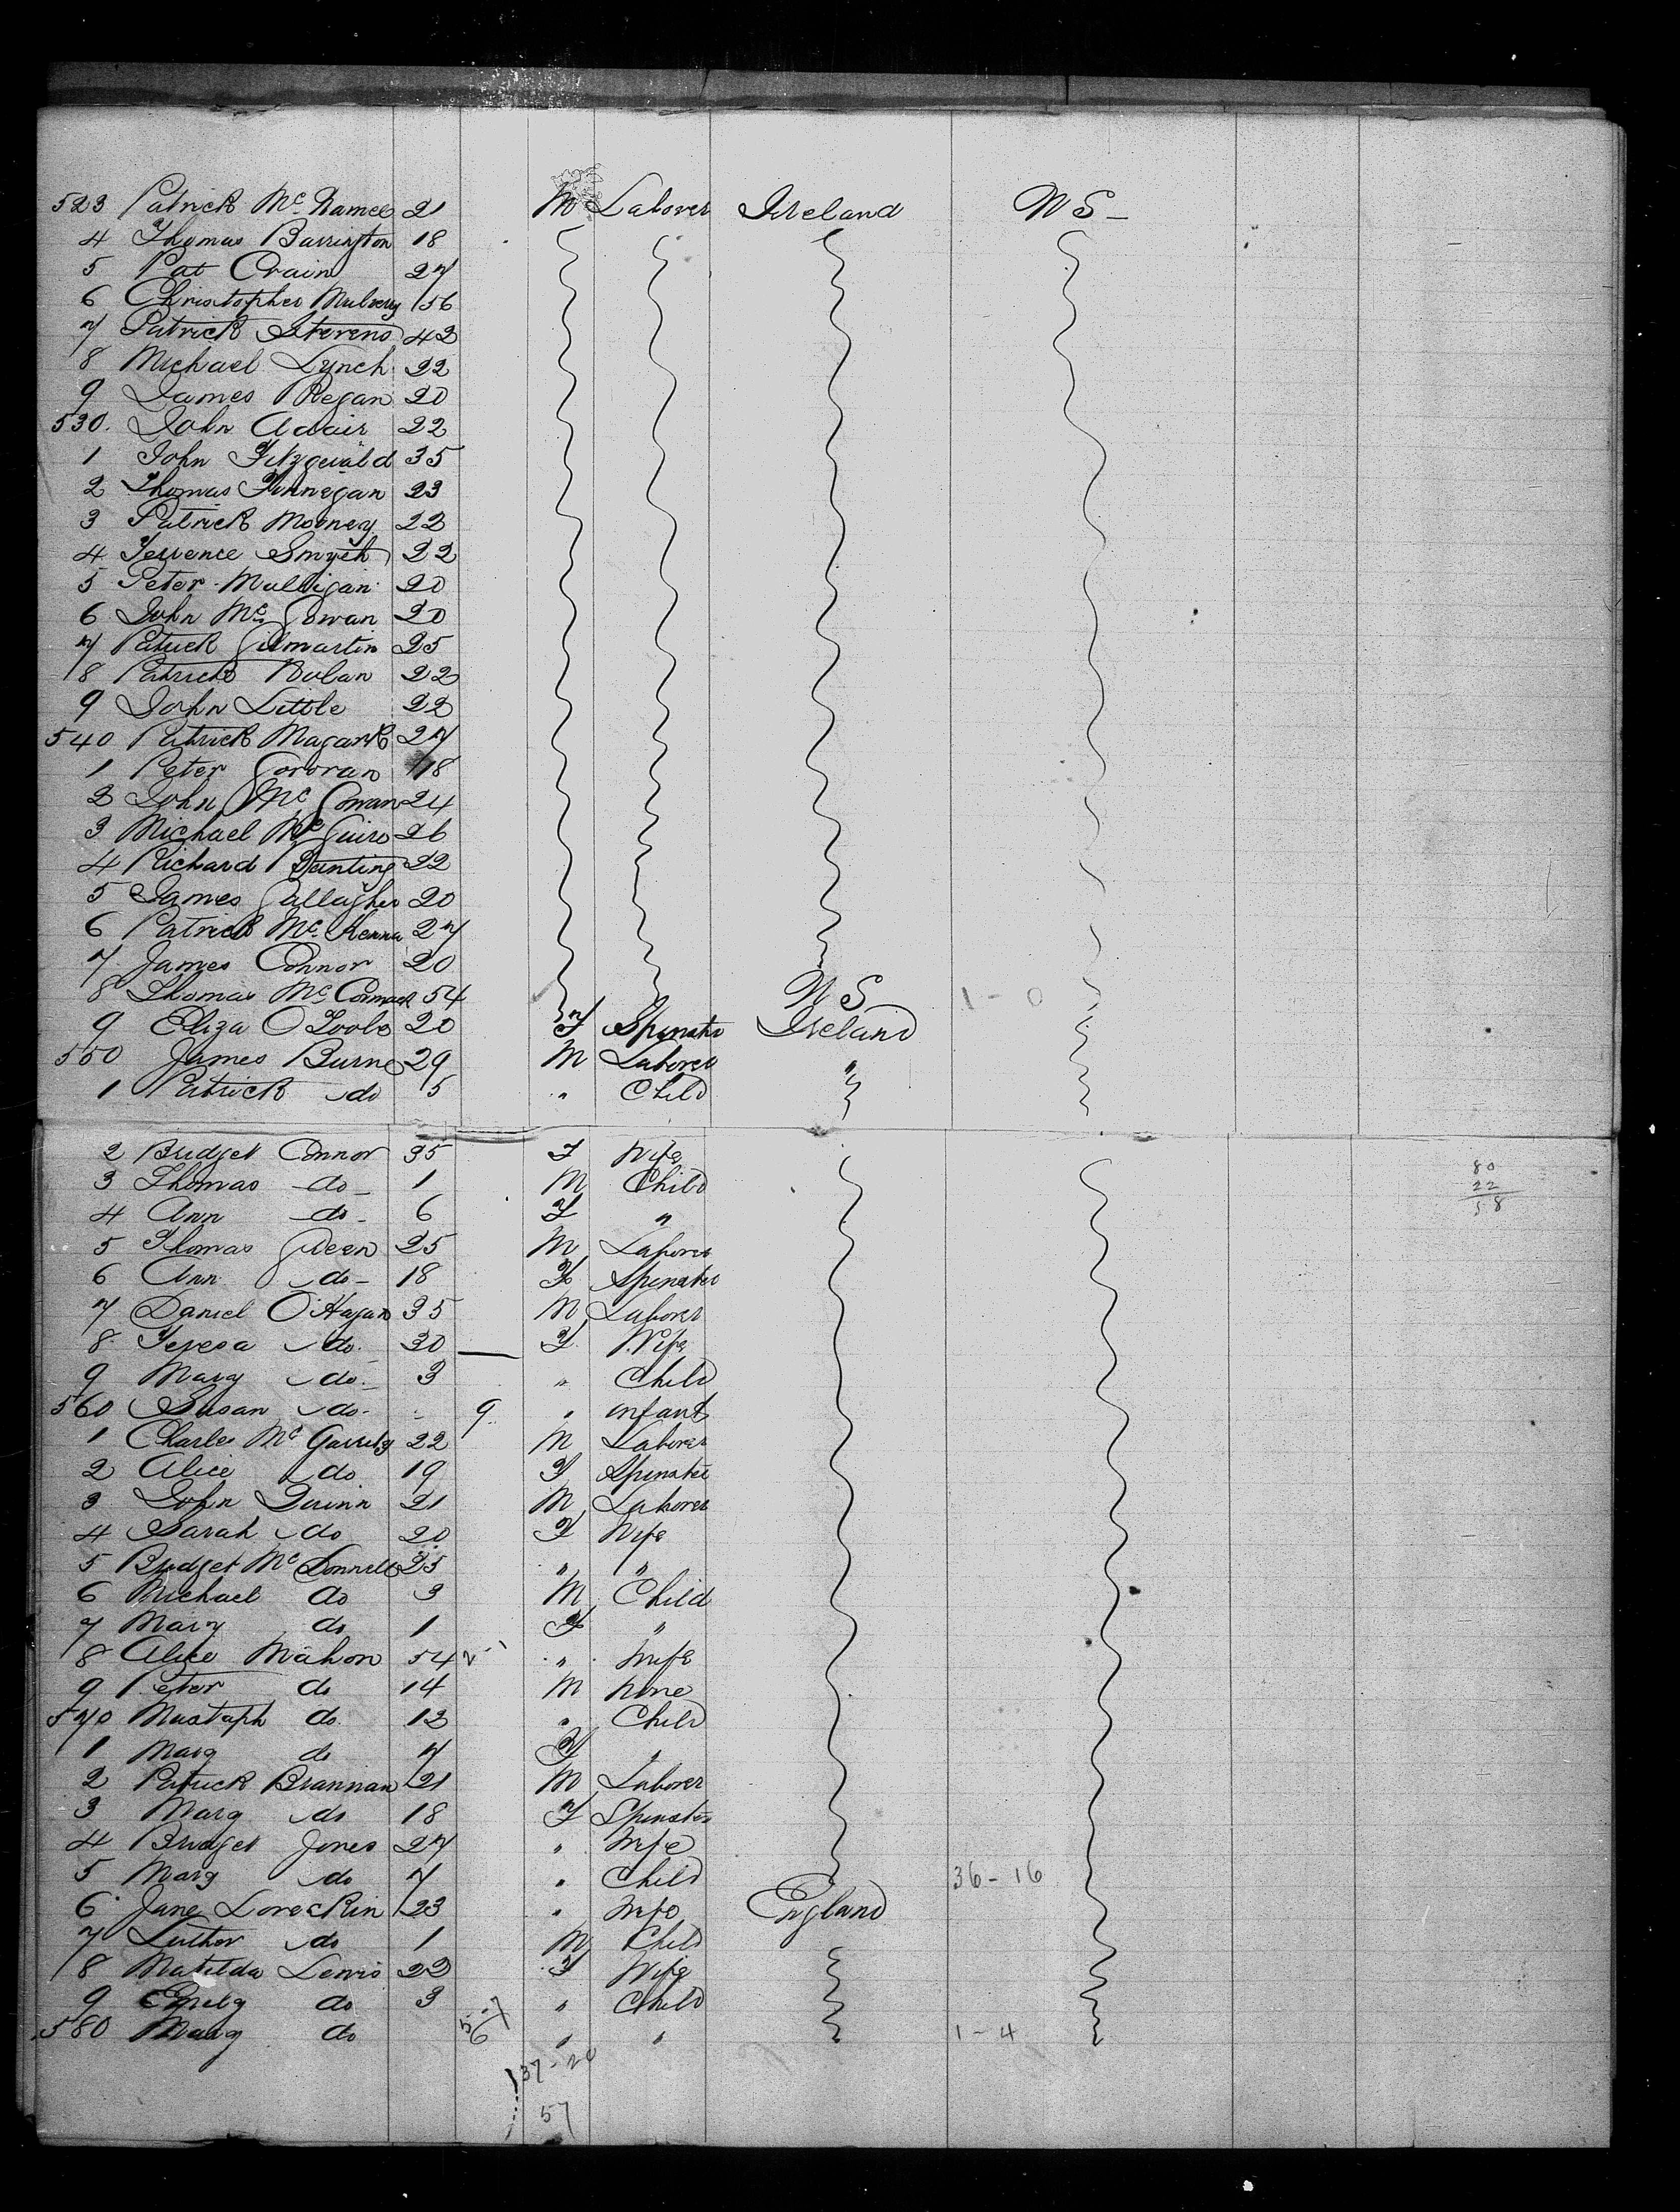 523 Patrick Mc Namee 21 M Laborer Ireland U S -
4 Thomas Barrington 18
5 Pat Crain 27
6 Christopher Mulveny 56
7 Patrick Stevens 42
8 Michael Lynch 22
9 James Regan 20
530. John Adair 22
1 John Fitzgerald 35
2 Thomas Finnegan 23
3 Patrick Mooney 22
4 Terrence Smyth 22
5 Peter Mulligan 20
6 John Mc Gowan 20
7 Patrick Gilmartin 25
8 Patrick Nolan 22
9 John Little 22
540 Patrick Magark 27
1 Peter Cororan 18
2 John Mc Gowan 24
3 Michael Mc Guire 26
4 Richard Bunting 22
5 James Gallagher 20
6 Patrick Mc Kenna 27
7 James Connor 20
8 Thomas Mc Cormack 54 U S 1 - 0
9 Eliza O Toole 20 F Spinster Ireland
550 James Burne 29 M Laborer "
1 Patrick do 5 " Child
2 Bridget Connor 35 F Wife
3 Thomas do - 1 M Child 80
4 Ann do - 6 F " 22
58
5 Thomas Green 25 M Laborer
6 Ann do - 18 F Spinster
7 Daniel O'Hagan 35 M Laborer
8 Teresa do. 30 F Wife
9 Mary do. 3 " Child
560 Susan do - 9 " infant
1 Charles Mc Garrity 22 M Laborer
2 Alice do 19 F Spinster
3 John Quinn 21 M Laborer
4 Sarah do 20 F Wife
5 Bridget Mc Donnell 25 " "
6 Michael do 3 M Child
7 Mary do 1 F "
8 Alice Mahon 54 " Wife
9 Peter do 14 M none
570 Mustaph do. 12 " Child
1 Mary do 7 F "
2 Patrick Brannan 21 M Laborer
3 Mary do 18 F Spinster
4 Bridget Jones 27 " Wife
5 Mary do 7 " Child 36 - 16
6 Jane Loreckin 23 " Wife England
7 Luther do 1 M Child
8 Matilda Lewis 22 F Wife
9 Emily do 3 " Child
580 Mary do " " 1 - 4
37 - 20
57